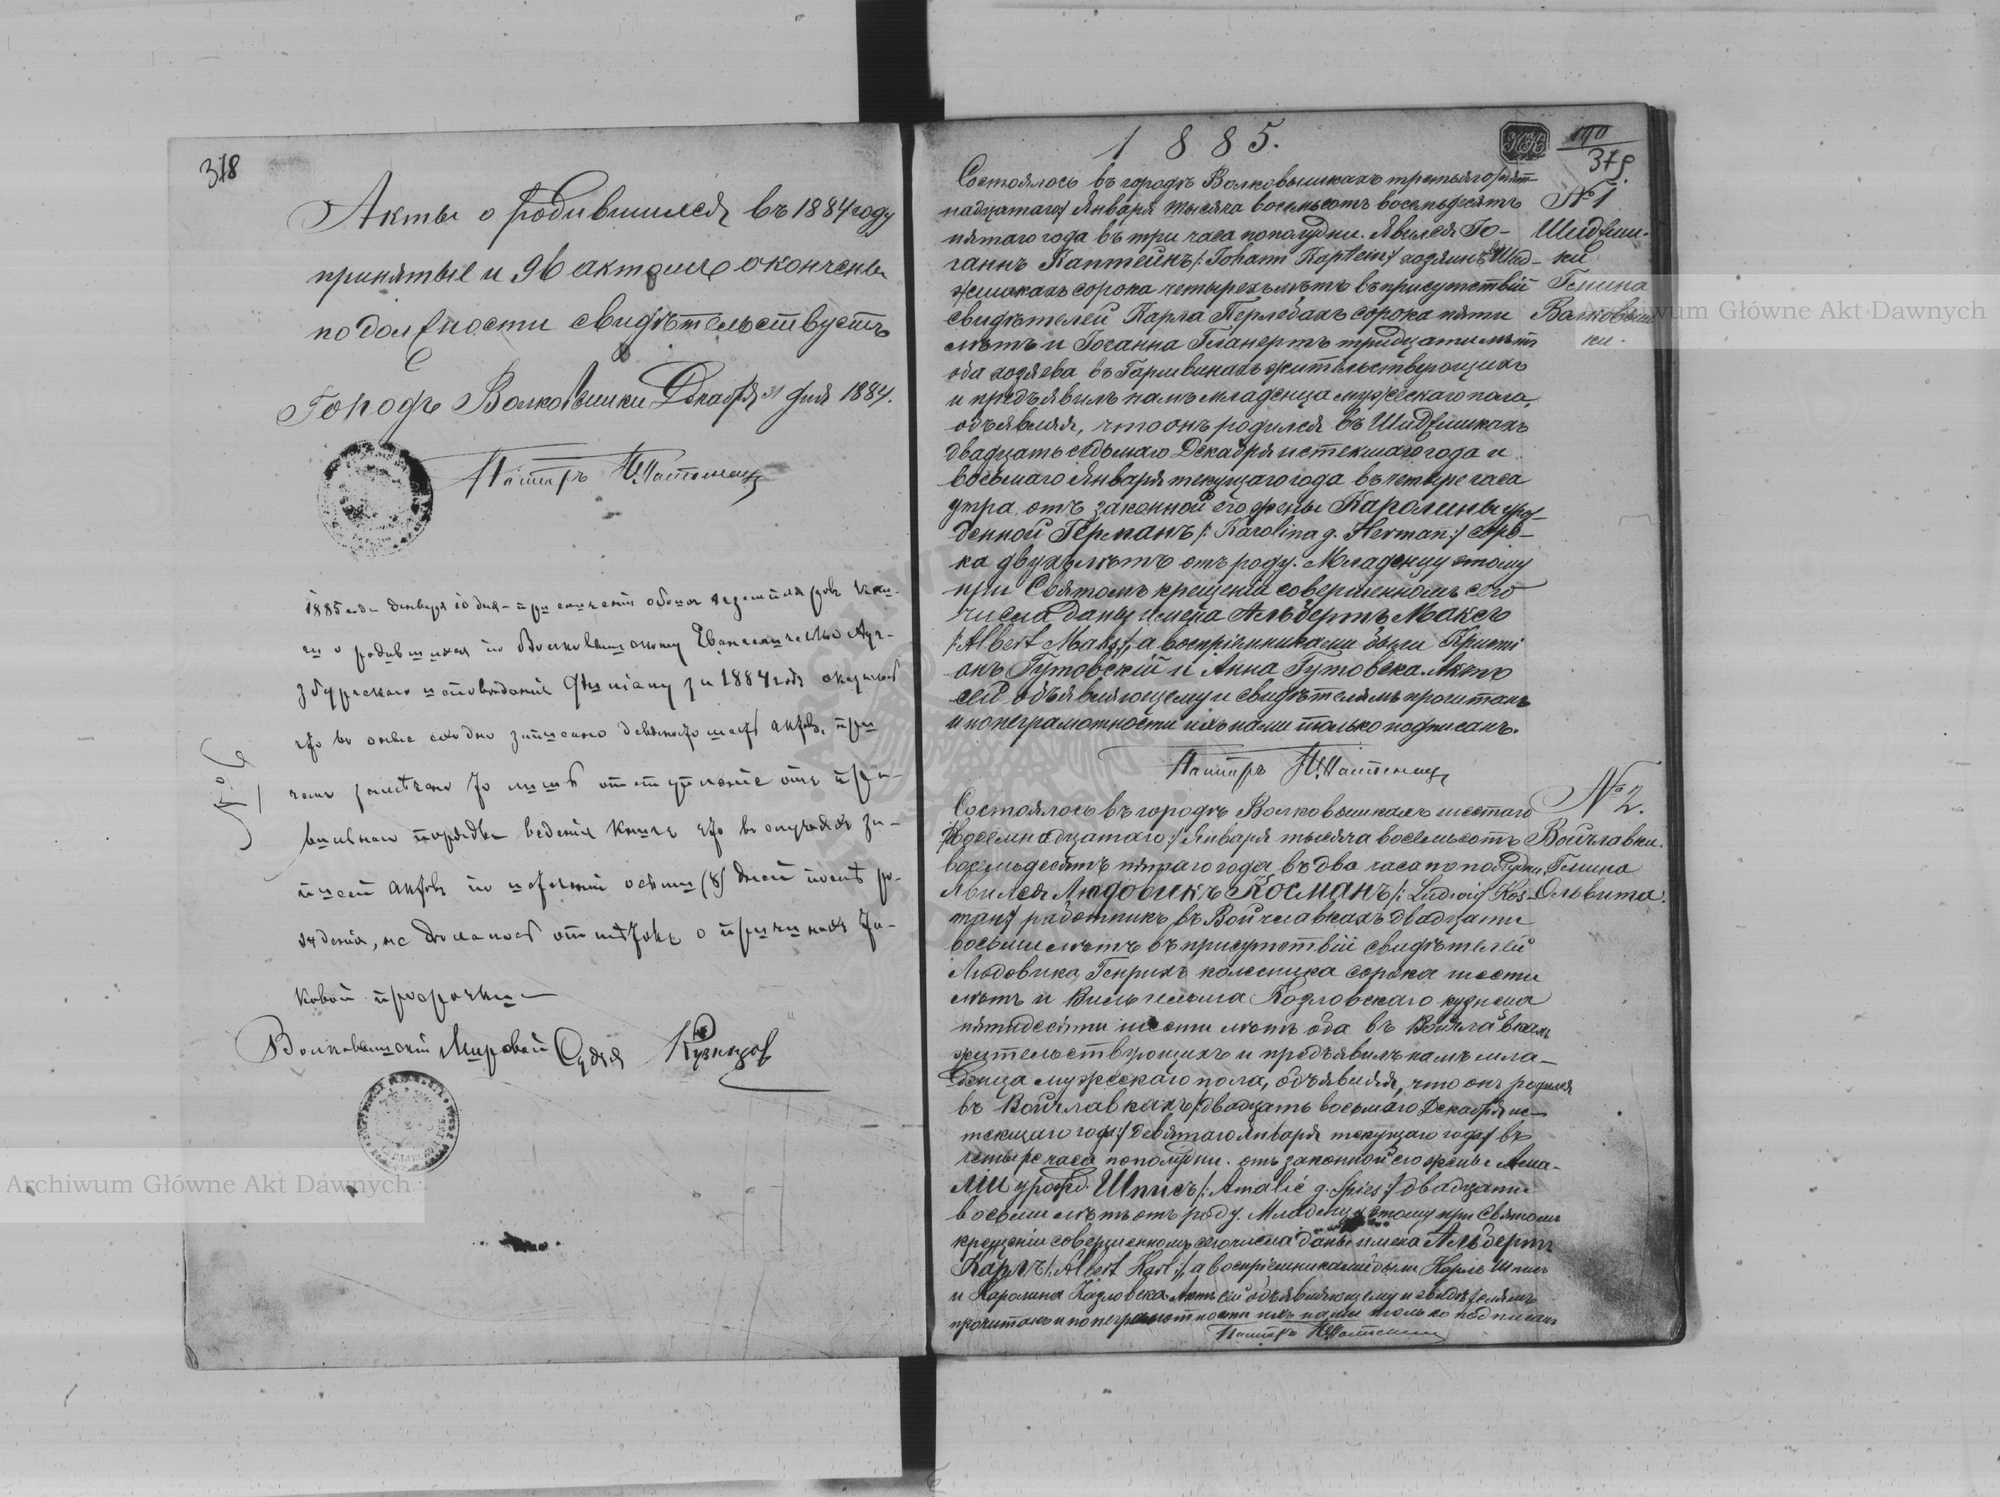 378
Акты о родившихся въ 1884 году
принятые и 96 актомъ окончены
по должности свидѣтельствуетъ
Городъ Волковышки Декабря 31 дня 1884.
Пасторъ
1885 года Января 10 дня при
о родившихся по Волковышскому Евангелическо Ауг-
збургскаго исповѣданія за 1884 годъ
записано девяносто шесть актовъ, при
чемъ замѣчено отступленіе отъ пра-
вильнаго порядка веденія книгъ что въ случаяхъ за-
писи актовъ по истеченіи осьми (8) дней послѣ ро-
жденія, не дѣлалось о причинахъ та-
ковой просрочки
Волковышскій Мировой Судья Кузнецов
1885.
190
379.
Состоялось въ городѣ Волковышкахъ третьяго /пят
надцатаго/ Января тысяча восемьсотъ восемьдесятъ
пятаго года въ три часа пополудни. Явился Іо-
ганнъ Каптейнъ /: Johann Kaptein :/ хозяинъ въ Шид-
жишкахъ сорока четырехъ лѣтъ въ присутствіи
свидѣтелей Карла Перлебахъ сорока пяти
лѣтъ и Іоганна Гланертъ тридцати лѣтъ
оба хозяева въ жительствующихъ
и предъявилъ намъ младенца мужескаго пола,
объявляя, что онъ родился въ Шиджишкахъ
двадцать седьмаго Декабря истекшаго года и
восьмаго Января текущаго года въ четыре часа
утра отъ законной его жены Каролины уро-
жденной Германъ /: Karolina g. Hermann :/ соро-
ка двухъ лѣтъ отъ роду. Младенцу этому
при Святомъ крещеніи совершенномъ сего
числа даны имена Альбертъ Максъ
/: Albert Maks :/, а воспріемниками были Кристі
анъ Гутовскій и Анна Гутовска. Актъ
сей объявляющему и свидѣтелямъ прочитанъ
и по неграмотности ихъ нами только подписанъ.
Пасторъ
№ 1
Шиджиш-
ки
Гмина
Волковыш
ки.
Состоялось въ городѣ Волковышкахъ шестаго
/восемнадцатаго/ Января тысяча восемьсотъ
восемьдесятъ пятаго года, въ два часа пополудни,
Явился Людовикъ Косманъ /: Ludwig Kos-
man :/ работникъ въ Войчлавкахъ двадцати
восьми лѣтъ въ присутствіи свидѣтелей
Людовика Генрихъ колесника сорока шести
лѣтъ и Вильгельма Козловскаго кузнеца
пятидесяти шести лѣтъ оба въ Войчлавкахъ
жительствующихъ и предъявилъ намъ мла-
денца мужескаго пола, объявляя, что онъ родился
въ Войчлавкахъ /двадцать восьмаго Декабря ис-
текшаго года/ девятаго Января текущаго года/ въ
четыре часа пополудни отъ законной его жены Ама-
ліи урожд. Шписъ /: Amalie g. Spies :/ двадцати
восьми лѣтъ отъ роду. Младенцу этому при Святомъ
крещеніи совершенномъ сего числа даны имена Альбертъ
Карлъ /: Albert Karl :/, а воспріемниками были Карлъ Шписъ
и Каролина Козловска. Актъ сей объявляющему и свидѣтелямъ
прочитанъ и по неграмотности ихъ нами только подписанъ
Пасторъ
№ 2.
Войчлавки.
Гмина
Ольвита.
Archiwum Główne Akt Dawnych
Archiwum Główne Akt Dawnych